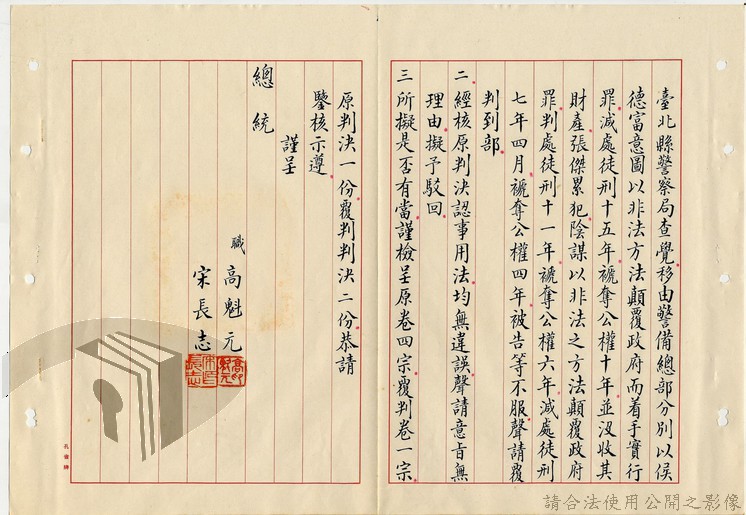 臺北縣警察局查覺移由警備總部分別以侯
德富意圖以非法方法顛覆政府而着手實行
罪減處徒刑十五年褫奪公權十年並沒收其
財產張傑累犯陰謀以非法之方法顛覆政府
罪判處徒刑十一年褫奪公權六年減處徒刑
七年四月褫奪公權四年被告等不服聲請覆
判到部
二經核原判決認事用法均無違誤聲請意旨無
理由擬予駁回
三所擬是否有當謹檢呈原卷四宗覆判卷一宗
原判決一份覆判判決二份恭請
鑒核示遵
謹呈
總統
職高魁元
宋長志
請合法使用公開之影像